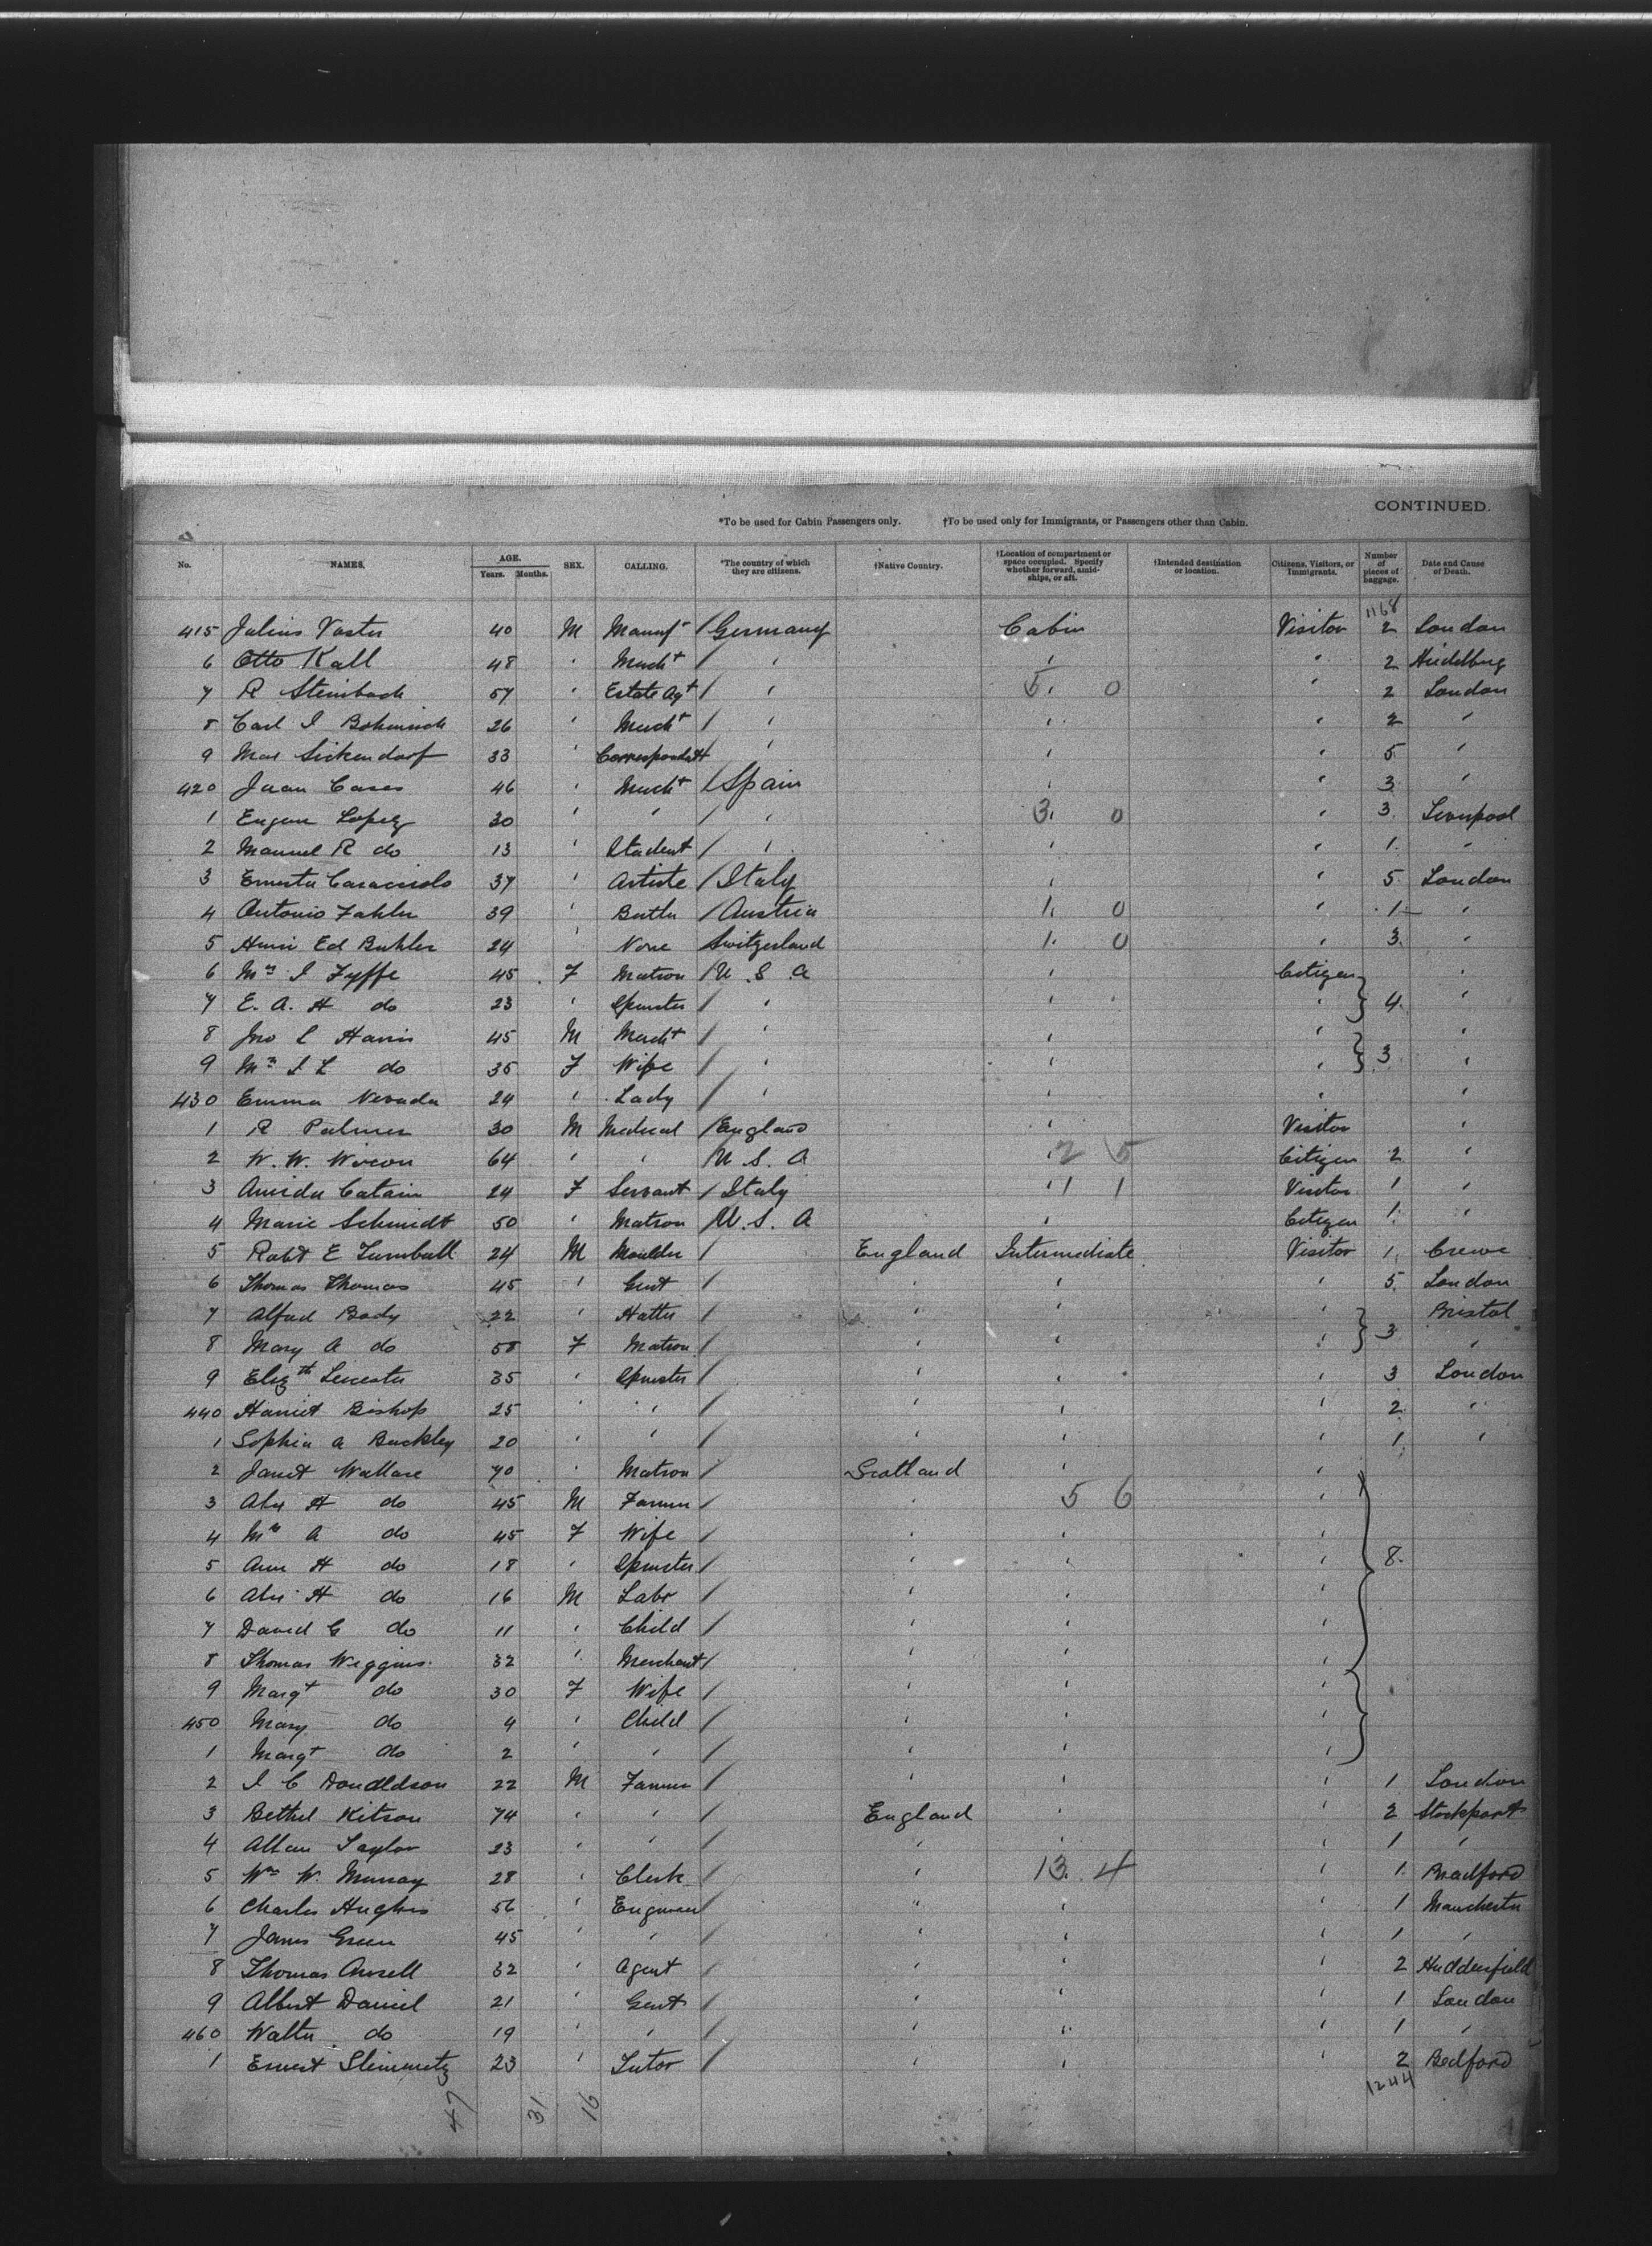 CONTINUED.
*To be used for Cabin Passengers only. †To be used only for Immigrants, or Passengers other than Cabin.
No. NAMES. AGE. Years. Months. SEX. CALLING. *The country of which they are citizens. †Native Country. †Location of compartment or space occupied. Specify whether forward, amidships, or aft. †Intended destination or location. Citizens, Visitors, or Immigrants. Number of pieces of baggage. Date and Cause of Death.
1168
415 Julius Vaster 40 M Manufr / Germany Cabin Visitor 2 London
6 Otto Kall 48 ' Mercht / ' ' ' 2 Heidelburg
7 R Steinback 57 ' Estate Agt / ' 5 0 ' 2 London
8 Carl I 26 ' Mercht / ' ' ' 2 '
9 Max Sickendorf 33 ' Correspondent ' ' ' 5 '
420 Juan Cases 46 ' Mercht / Spain ' ' 3 '
1 Eugene Lopez 30 ' ' / ' 3 0 ' 3 Liverpool
2 Manuel R do 13 ' Student / ' ' ' 1 '
3 Ernesto Caracciolo 37 ' Artiste / Italy ' ' 5 London
4 Antonio Zahler 39 ' Butler / Austria 1 0 ' 1 '
5 Henri Ed Buhler 24 ' None Switzerland 1 0 ' 3 '
6 Mrs I Fyffe 45 F Matron / U S A ' Citizen '
7 E. A. H do 23 ' Spinster / ' ' ' } 4 '
8 Jno L Harris 45 M Mercht / ' ' ' '
9 Mrs I L do 35 F Wife / ' ' ' } 3 '
430 Emma Nevada 24 ' Lady / ' ' ' '
1 R Palmer 30 M Medical / England ' Visitor '
2 W. W. 64 ' ' / U. S. A 2 5 Citizen 2 '
3 Catain 24 F Servant / Italy ' 1 1 Visitor 1 '
4 Marie Schmidt 50 ' Matron / U. S. A ' Citizen 1 '
5 Robt E Turnbull 24 M Moulder / England Intermediate Visitor 1 Crewe
6 Thomas Thomas 45 ' Gent / ' ' ' 5 London
7 Alfred Body 22 ' Hatter / ' ' ' Bristol
8 Mary A do 58 F Matron / ' ' ' } 3 '
9 Elizth Leicester 35 ' Spinster / ' ' ' 3 London
440 Harriet Bishop 25 ' ' / ' ' ' 2 '
1 Sophia A Buckley 20 ' ' / ' ' ' 1 '
2 Janet Wallace 70 ' Matron / Scotland ' '
3 Alex H do 45 M Farmer / ' 5 6 '
4 Mrs A do 45 F Wife / ' ' '
5 Ann H do 18 ' Spinster / ' ' ' } 8
6 Alex H do 16 M Labr / ' ' '
7 David G do 11 ' Child / ' ' '
8 Thomas Wiggins 32 ' Merchant / ' ' '
9 Margt do 30 F Wife / ' ' '
450 Mary do 4 ' Child / ' ' '
1 Margt do 2 ' ' / ' ' '
2 I C Donaldson 22 M Farmer / ' ' ' 1 London
3 Bethel Kitson 74 ' ' / England ' ' 2 Stockport
4 Allan Taylor 23 ' ' / ' ' ' 1 '
5 Wm W. Murray 28 ' Clerk / ' 13 4 ' 1 Bradford
6 Charles Hughes 56 ' Engineer / " ' ' 1 Manchester
7 James Green 45 ' ' / ' ' ' 1 '
8 Thomas Ansell 32 ' Agent / ' ' ' 2 Huddersfield
9 Albert Daniel 21 ' Gent / ' ' ' 1 London
460 Walter do 19 ' ' / ' ' ' 1 '
1 Ernest Slimmetz 23 ' Tutor / ' ' ' 2 Bedford
47 31 16 1244